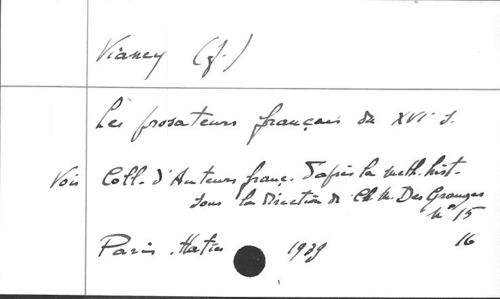 Vianey (J.)
Les prosateurs français du XVI s.
Voir Coll. d'Auteurs franç. d'après la meth. hist.
sous la direction de Ch. M. Des Granges
N° 15
16
Paris. Hatier 1939